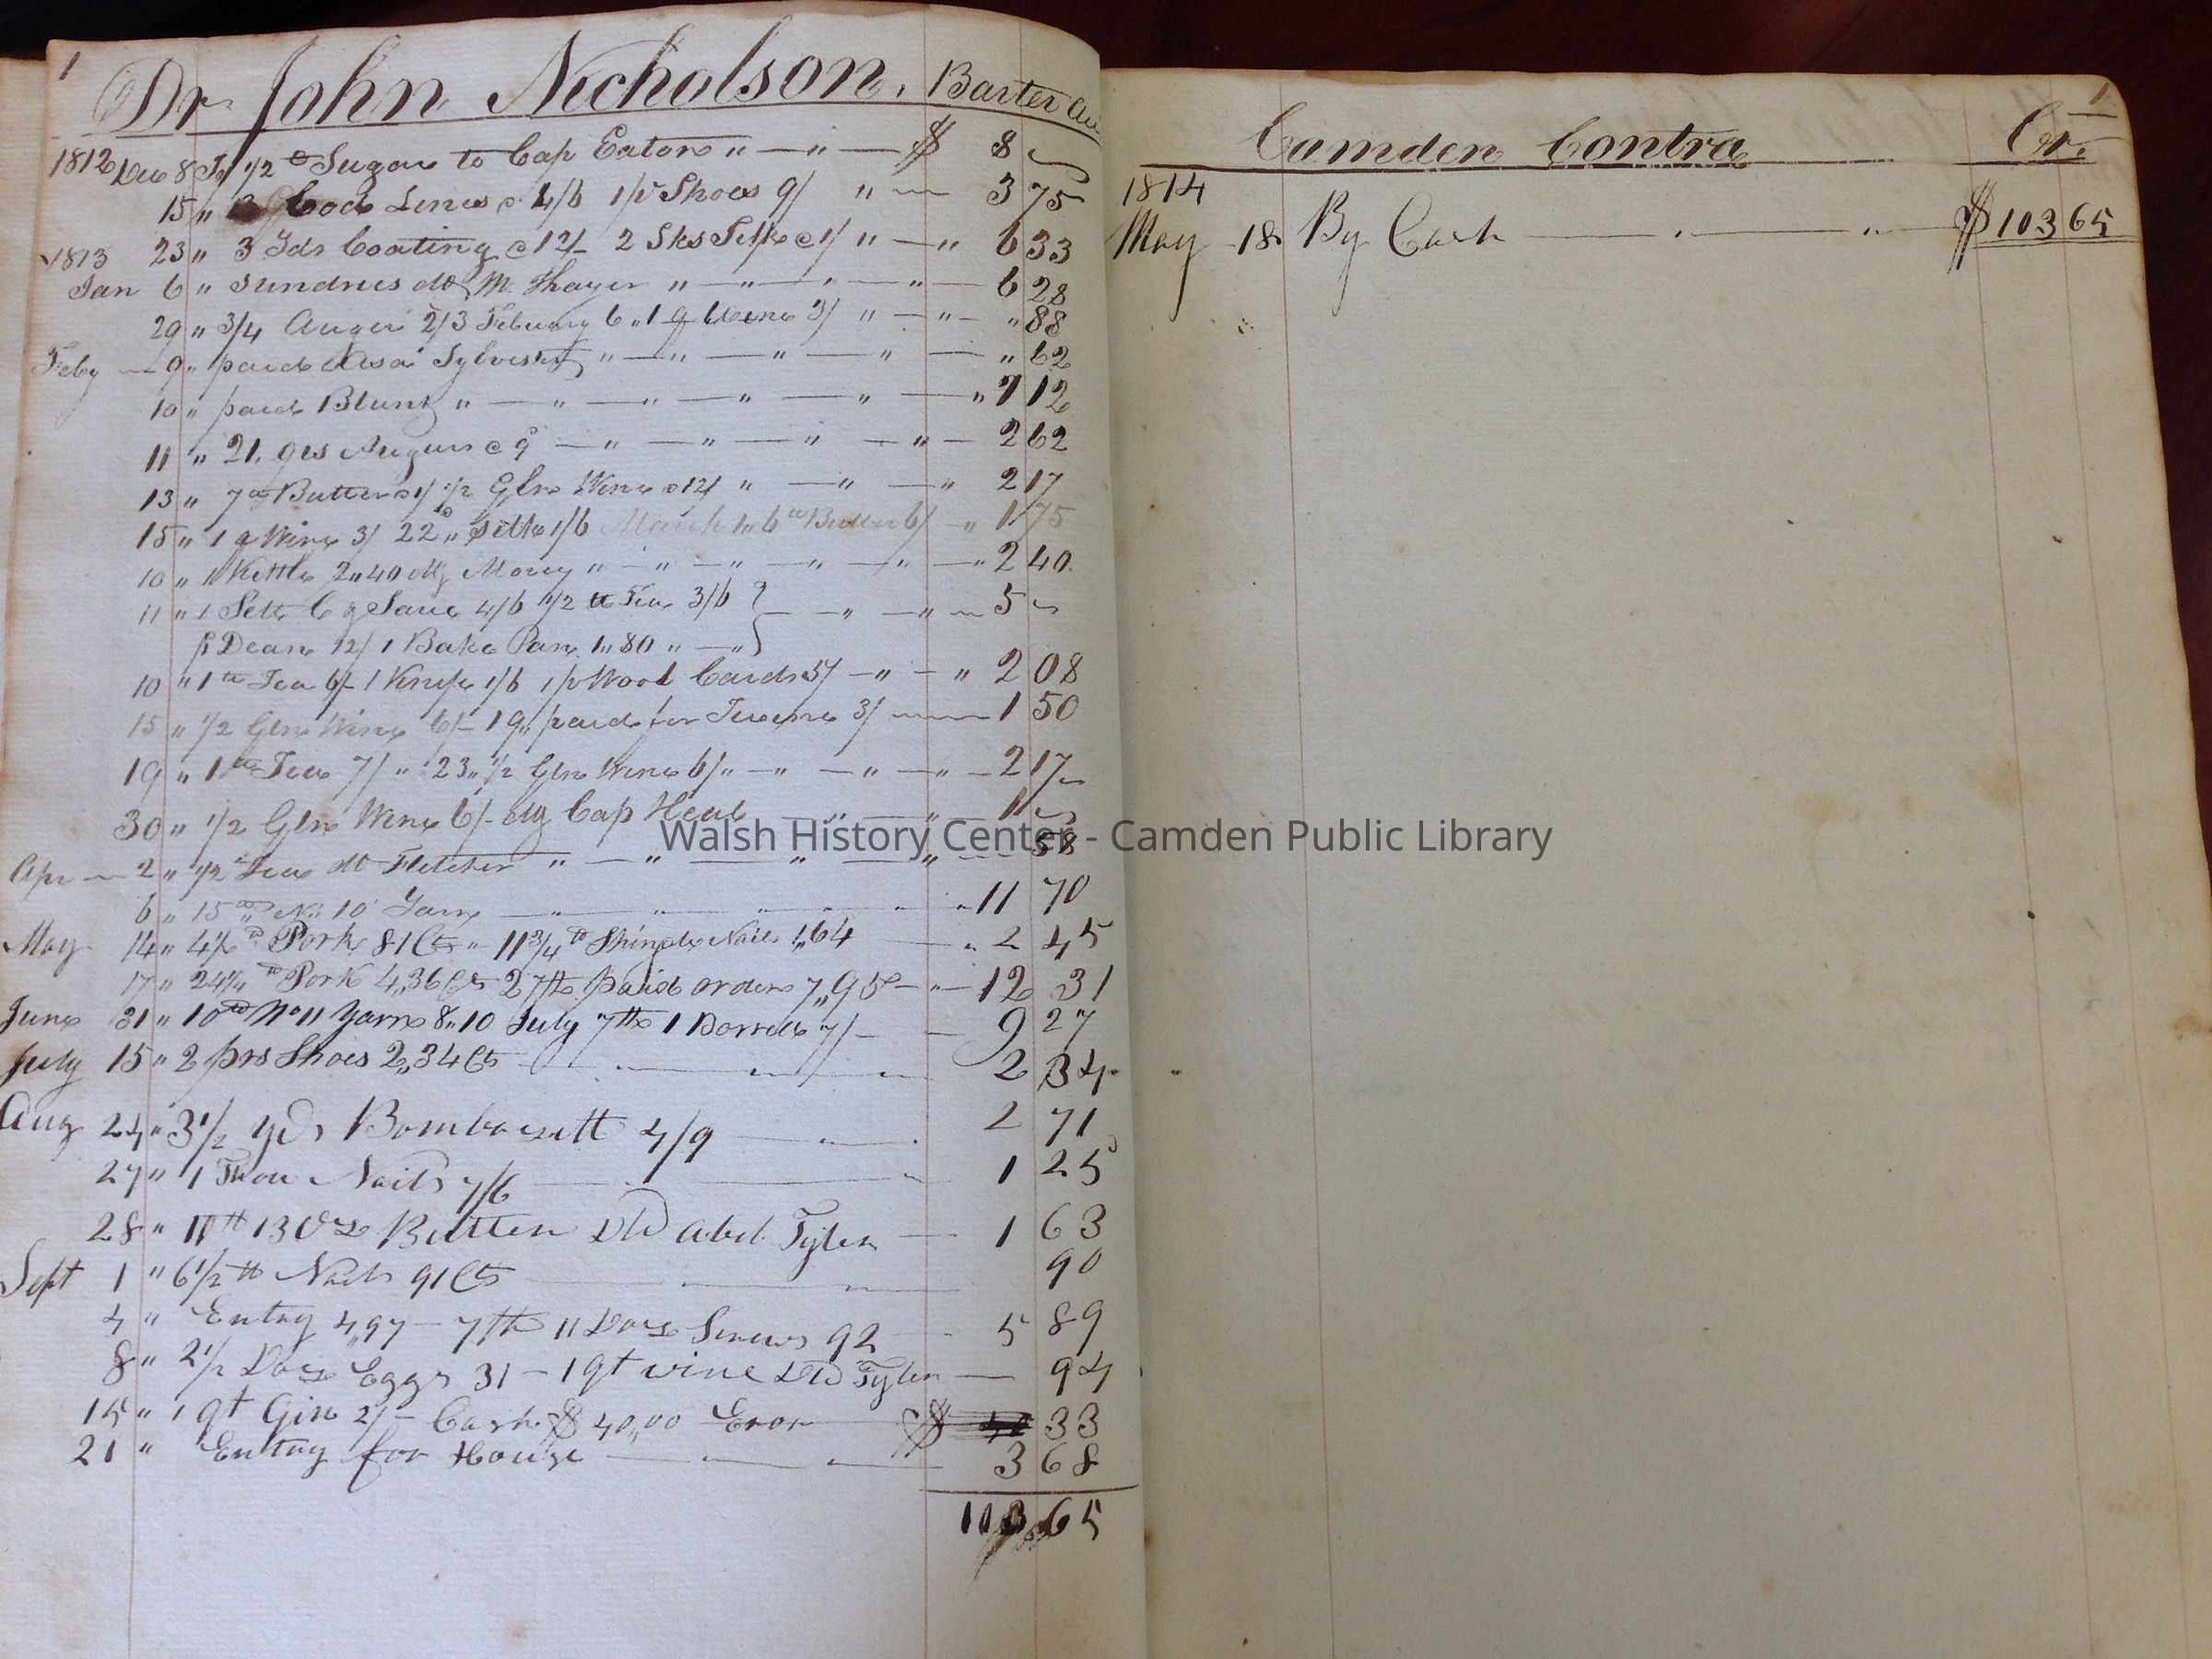 1
Dr John Nicholson, Barter
1812 Dec 8 To 1/2 c Sugar to Cap Eaton " — " — $ 8 ~
15 " Cod Lines c 4/6 1/pr Shoes 9/ " — 3 75
1813 23 " 3 Yds Coating c 12/- 2 Sks Silk c 1/ " — " 6 33
Jan 6 " Sundries dd M Thayer " — " — " — " — 6 28
29 " 3/4 Auger 2/3 February 6 " 1 q Wine 3/ " — " — " 88
Feby — 9 " paid Asa Sylvester " — " — " — " — " 62
10 " paid Blunt " — " — " — " — " — " 7 12
11 " 21. qrs c 9 — " — " — " — " — 2 62
13 " 7 lb Butter c 1/ 1/2 Gln Wine c 12/ " — " — " 2 17
15 " 1 q Wine 3/ 22 " Silk 1/6 March 1 " 6 lb Butter 6/ — " 1 75
10 " 1 Kettle 2 " 40 Morey " — " — " — " — " — " 2 40
11 " 1 Sett 4/6 1/2 lb Tea 3/6 } — " — " — 5 ~
Dean 12/ 1 Bake Pan 1 " 80 " — "
10 " 1 lb Tea 6/- 1 Knife 1/6 1/pr Wool Cards 5/ — " — " 2 08
15 " 1/2 Gln Wine 6/- 19 " paid for 3/ — 1 50
19 " 1 lb Tea 7/ " 23 " 1/2 Gln Wine 6/ " — " — " — " — 2 17
30 " 1/2 Gln Wine 6/- Cap Heal — " — " 1 ~
Apr — 2 " 1/2 Tea dd Fletcher " — " — " — " — 58
6 " 15 lb No 10 Yarn — " — " — " — " 11 70
May 14 " 4 1/2 lb Pork 81 Cts " 11 3/4 lb Shingle Nails 1,64 — " 2 45
17 " 24 1/4 lb Pork 4,,36 Cts 27th paid order 7,,95 — " — 12 31
June 31 " 10 lb No 11 Yarn 8 " 10 July 7th 1 Barrell 7/ — 9 27
July 15 " 2 prs Shoes 2,,34 Cts — 2 34
Aug 24 " 3 1/2 yds Bombazett 4/9 — 2 71
27 " 1 Thou Nails 7/6 — 1 25
28 " 11 lb 13 Oz Butter DD Abel Tyler — 1 63
Sept 1 " 6 1/2 lb Nails 91 Cts — 90
4 " Entry 4,97 — 7th 11 Doz Screws 92 — 5 89
8 " 2 1/2 Doz Eggs 31 — 1 qt wine DD Tyler — 94
15 " 1 qt Gin 2/- Cash $ 40,,00 Eror $ 33
21 " Entry for House — 3 68
103 65
1
Camden Contra Cr.
1814
May 18 By Cash — " — " — $ 103 65
Walsh History Center - Camden Public Library